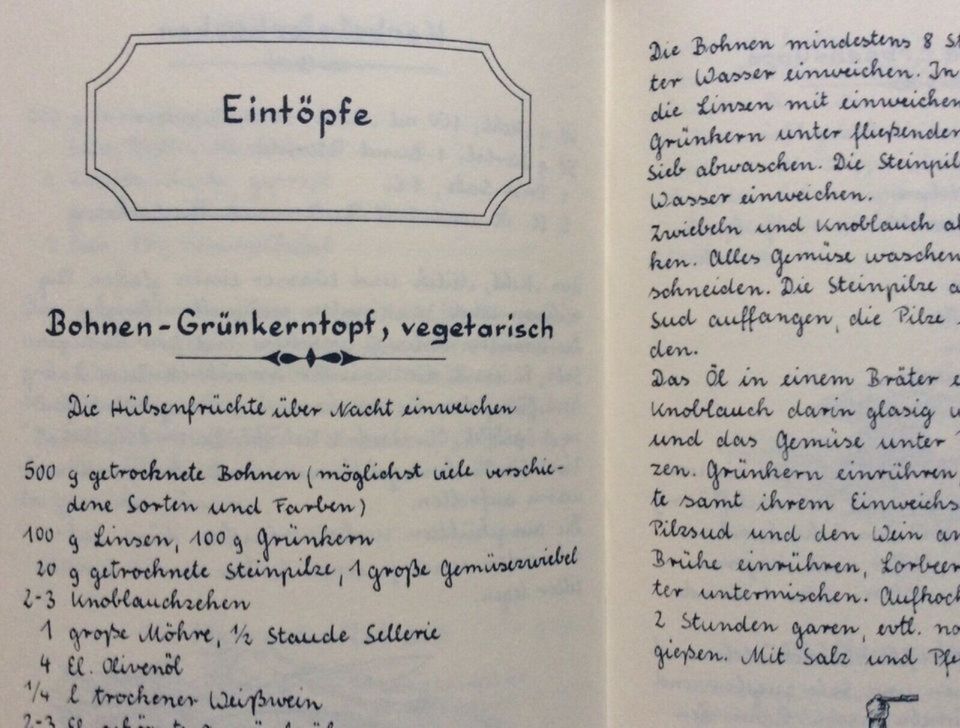 Eintöpfe
Bohnen-Grünkerntopf, vegetarisch
Die Hülsenfrüchte über Nacht einweichen
500 g getrocknete Bohnen (möglichst viele verschie-
dene Sorten und Farben)
100 g Linsen, 100 g Grünkern
20 g getrocknete Steinpilze, 1 große Gemüsezwiebel
2-3 Knoblauchzehen
1 große Möhre, 1/2 Staude Sellerie
4 El. Olivenöl
1/4 l trockener Weißwein
2-3 El.
Die Bohnen mindestens 8 St
ter Wasser einweichen. In
die Linsen mit einweichen
Grünkern unter fließenden
Sieb abwaschen. Die Steinpil
Wasser einweichen.
Zwiebeln und Knoblauch a
ken. Alles Gemüse waschen
schneiden. Die Steinpilze a
Sud auffangen, die Pilze
den.
Das Öl in einem Bräter e
Knoblauch darin glasig
und das Gemüse unter
zen. Grünkern einrühren,
te samt ihrem Einweichs
Pilzsud und den Wein an
Brühe einrühren, Lorbeer
ter untermischen. Aufkoch
2 Stunden garen, evtl. no
gießen. Mit Salz und Pfe